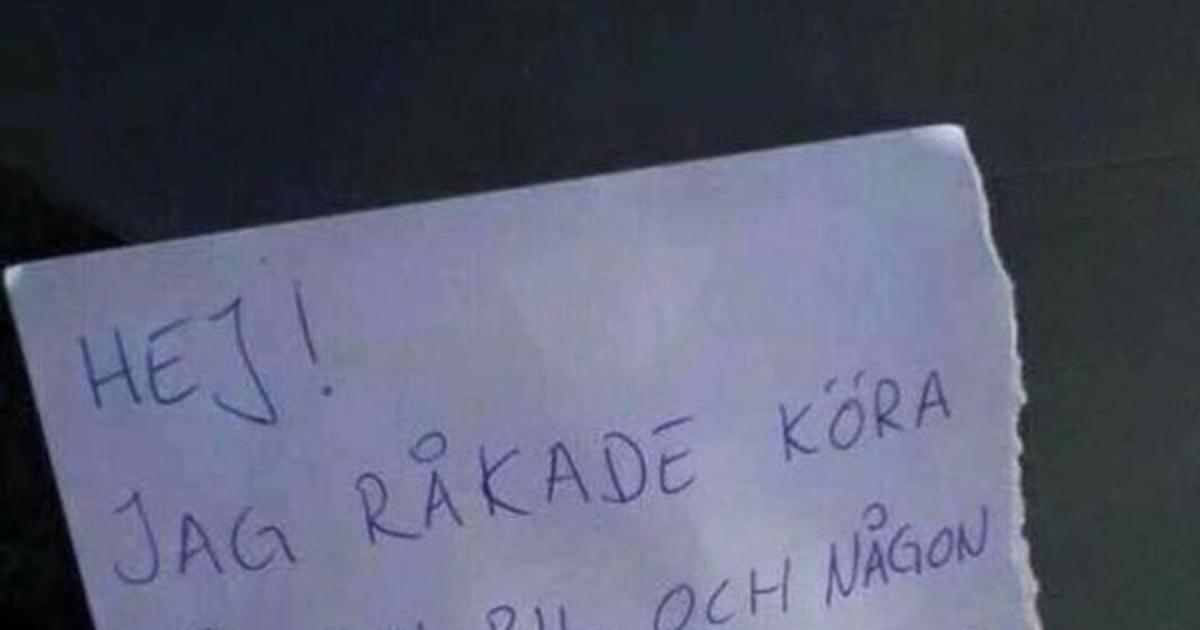 HEJ!
JAG RÅKADE KÖRA
BIL OCH NÅGON